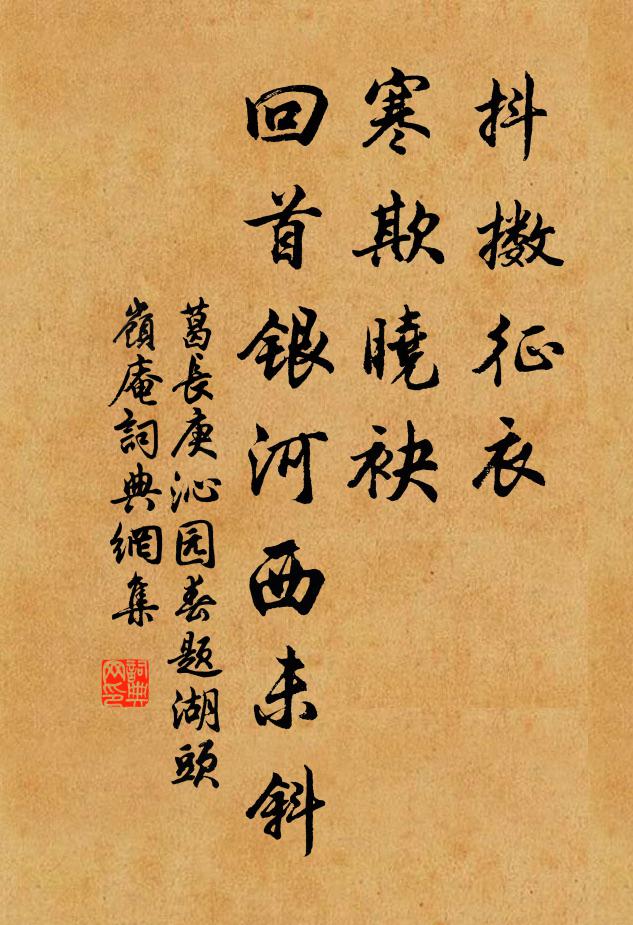 抖擞征衣
寒欺曉袂
回首銀河西未斜
葛長庚沁园春题湖頭
嶺庵詞典網集
詞典
网印